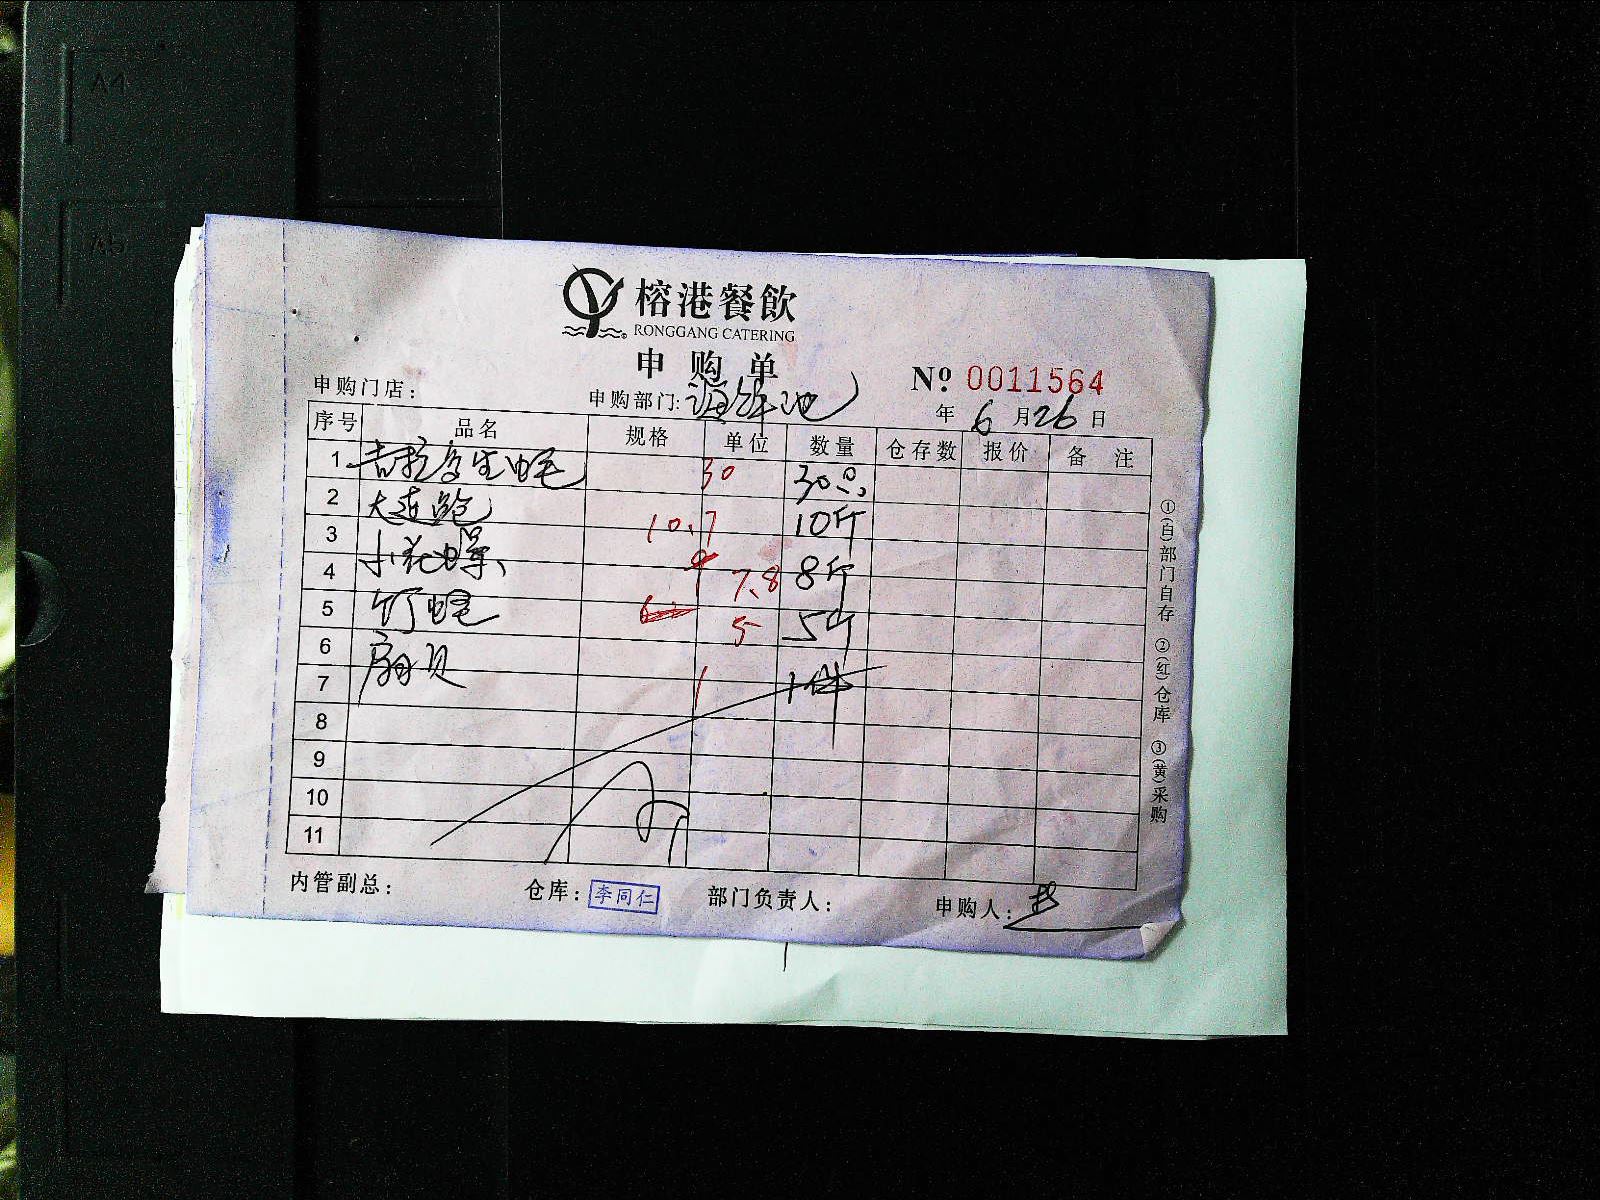 A4
A5
榕港餐飲
RONGGANG CATERING
申购单
№ 0011564
申购门店：
申购部门：海鲜池
年 6 月 26 日
序号 品名 规格 单位 数量 仓存数 报价 备 注
1 吉拉多生蚝 30 30只
2 大连鲍 10.7 10斤
3 小花螺 9 7.8 8斤
4
5 竹蛏 5 5斤
6 扇贝 1 1件
7
8
9
10
11
①(白)部门自存 ②(红)仓库 ③(黄)采购
内管副总： 仓库：李同仁 部门负责人： 申购人：